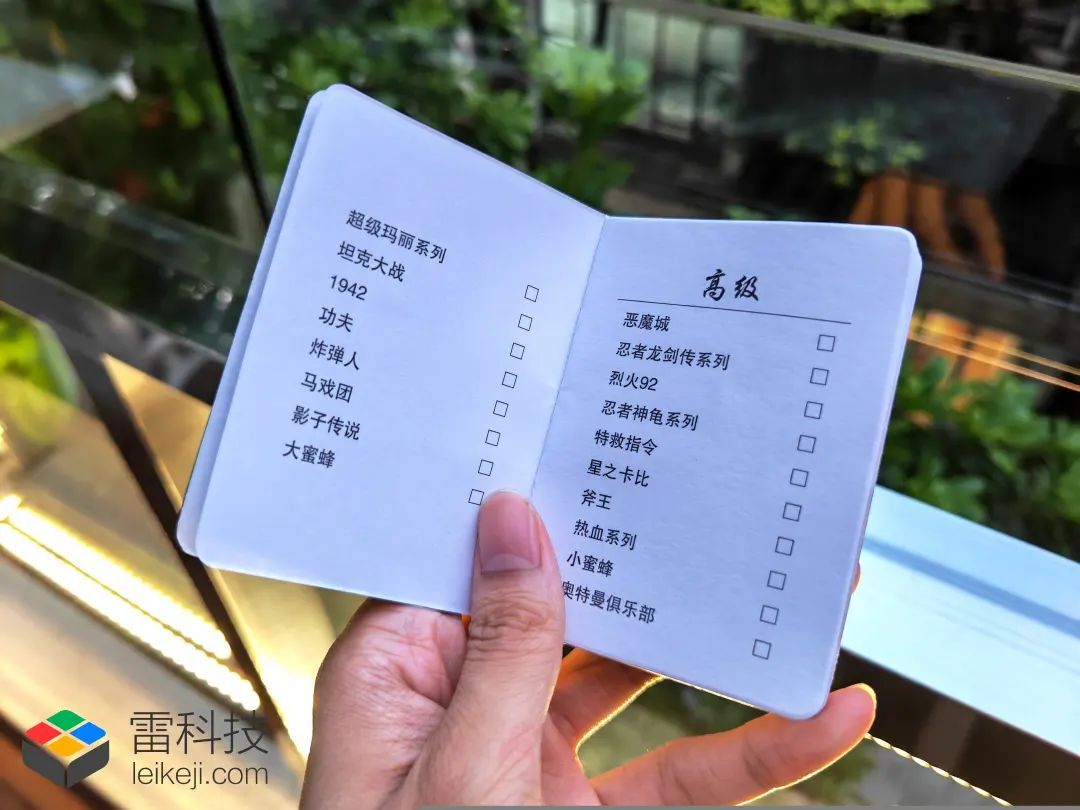 超级玛丽系列
坦克大战
1942
功夫
炸弹人
马戏团
影子传说
大蜜蜂
高级
恶魔城
忍者龙剑传系列
烈火92
忍者神龟系列
特救指令
星之卡比
斧王
热血系列
小蜜蜂
奥特曼俱乐部
雷科技
leikeji.com